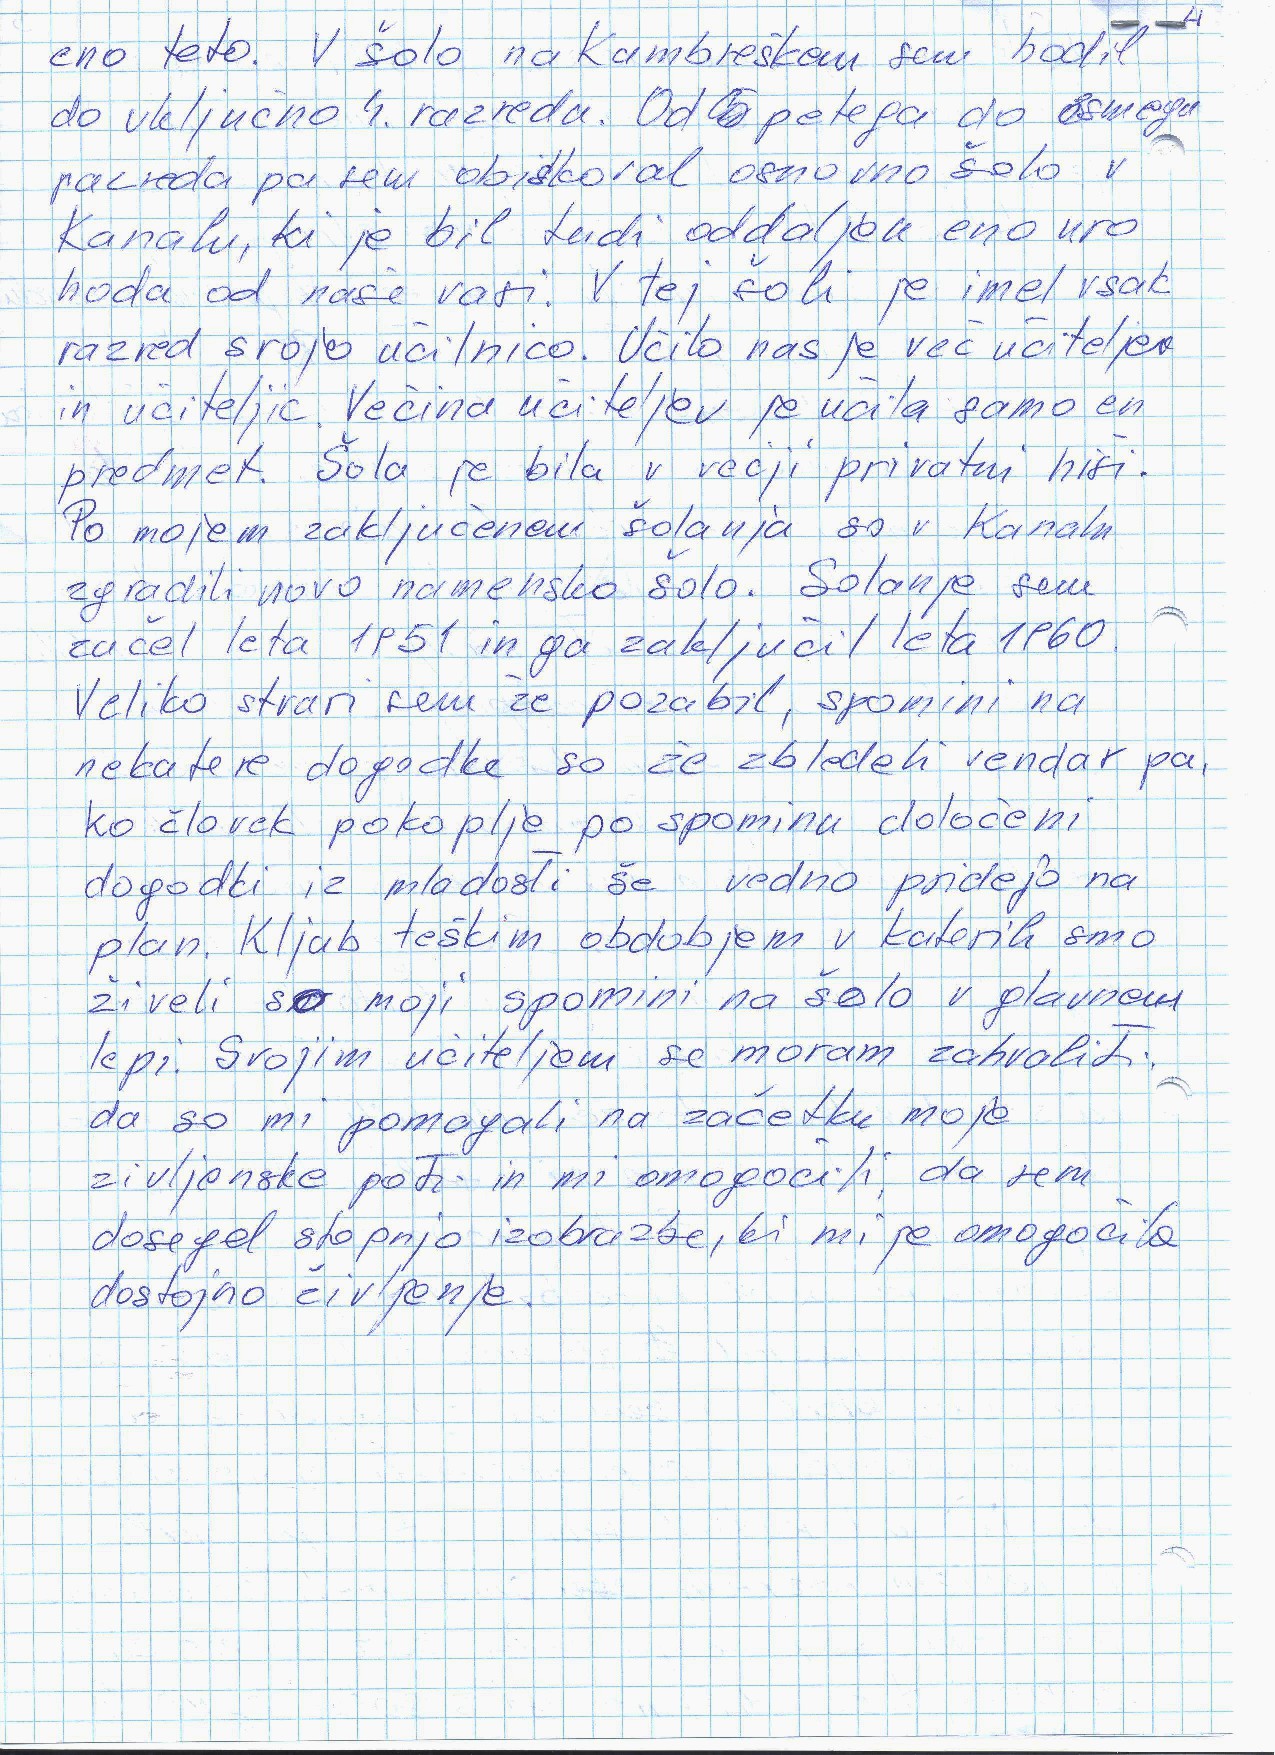 4
eno teto. V šolo na Kambreškem sem hodil
do vključno 4. razreda. Od petega do osmega
razreda pa sem obiskoval osnovno šolo v
Kanalu, ki je bil tudi oddaljen eno uro
hoda od naše vasi. V tej šoli je imel vsak
razred svojo učilnico. Učilo nas je več učiteljev
in učiteljic. Večina učiteljev je učila samo en
predmet. Šola je bila v večji privatni hiši.
Po mojem zaključenem šolanja so v Kanalu
zgradili novo namensko šolo. Šolanje sem
začel leta 1951 in ga zaključil leta 1960.
Veliko stvari sem že pozabil, spomini na
nekatere dogodke so že zbledeli vendar pa,
ko človek pokoplje po spominu določeni
dogodki iz mladosti še vedno pridejo na
plan. Kljub teškim obdobjem v katerih smo
živeli so moji spomini na šolo v glavnem
lepi. Svojim učiteljem se moram zahvaliti,
da so mi pomagali na začetku moje
zivljenske poti in mi omogočili, da sem
dosegel stopnjo izobrazbe, ki mi je omogočila
dostojno življenje.